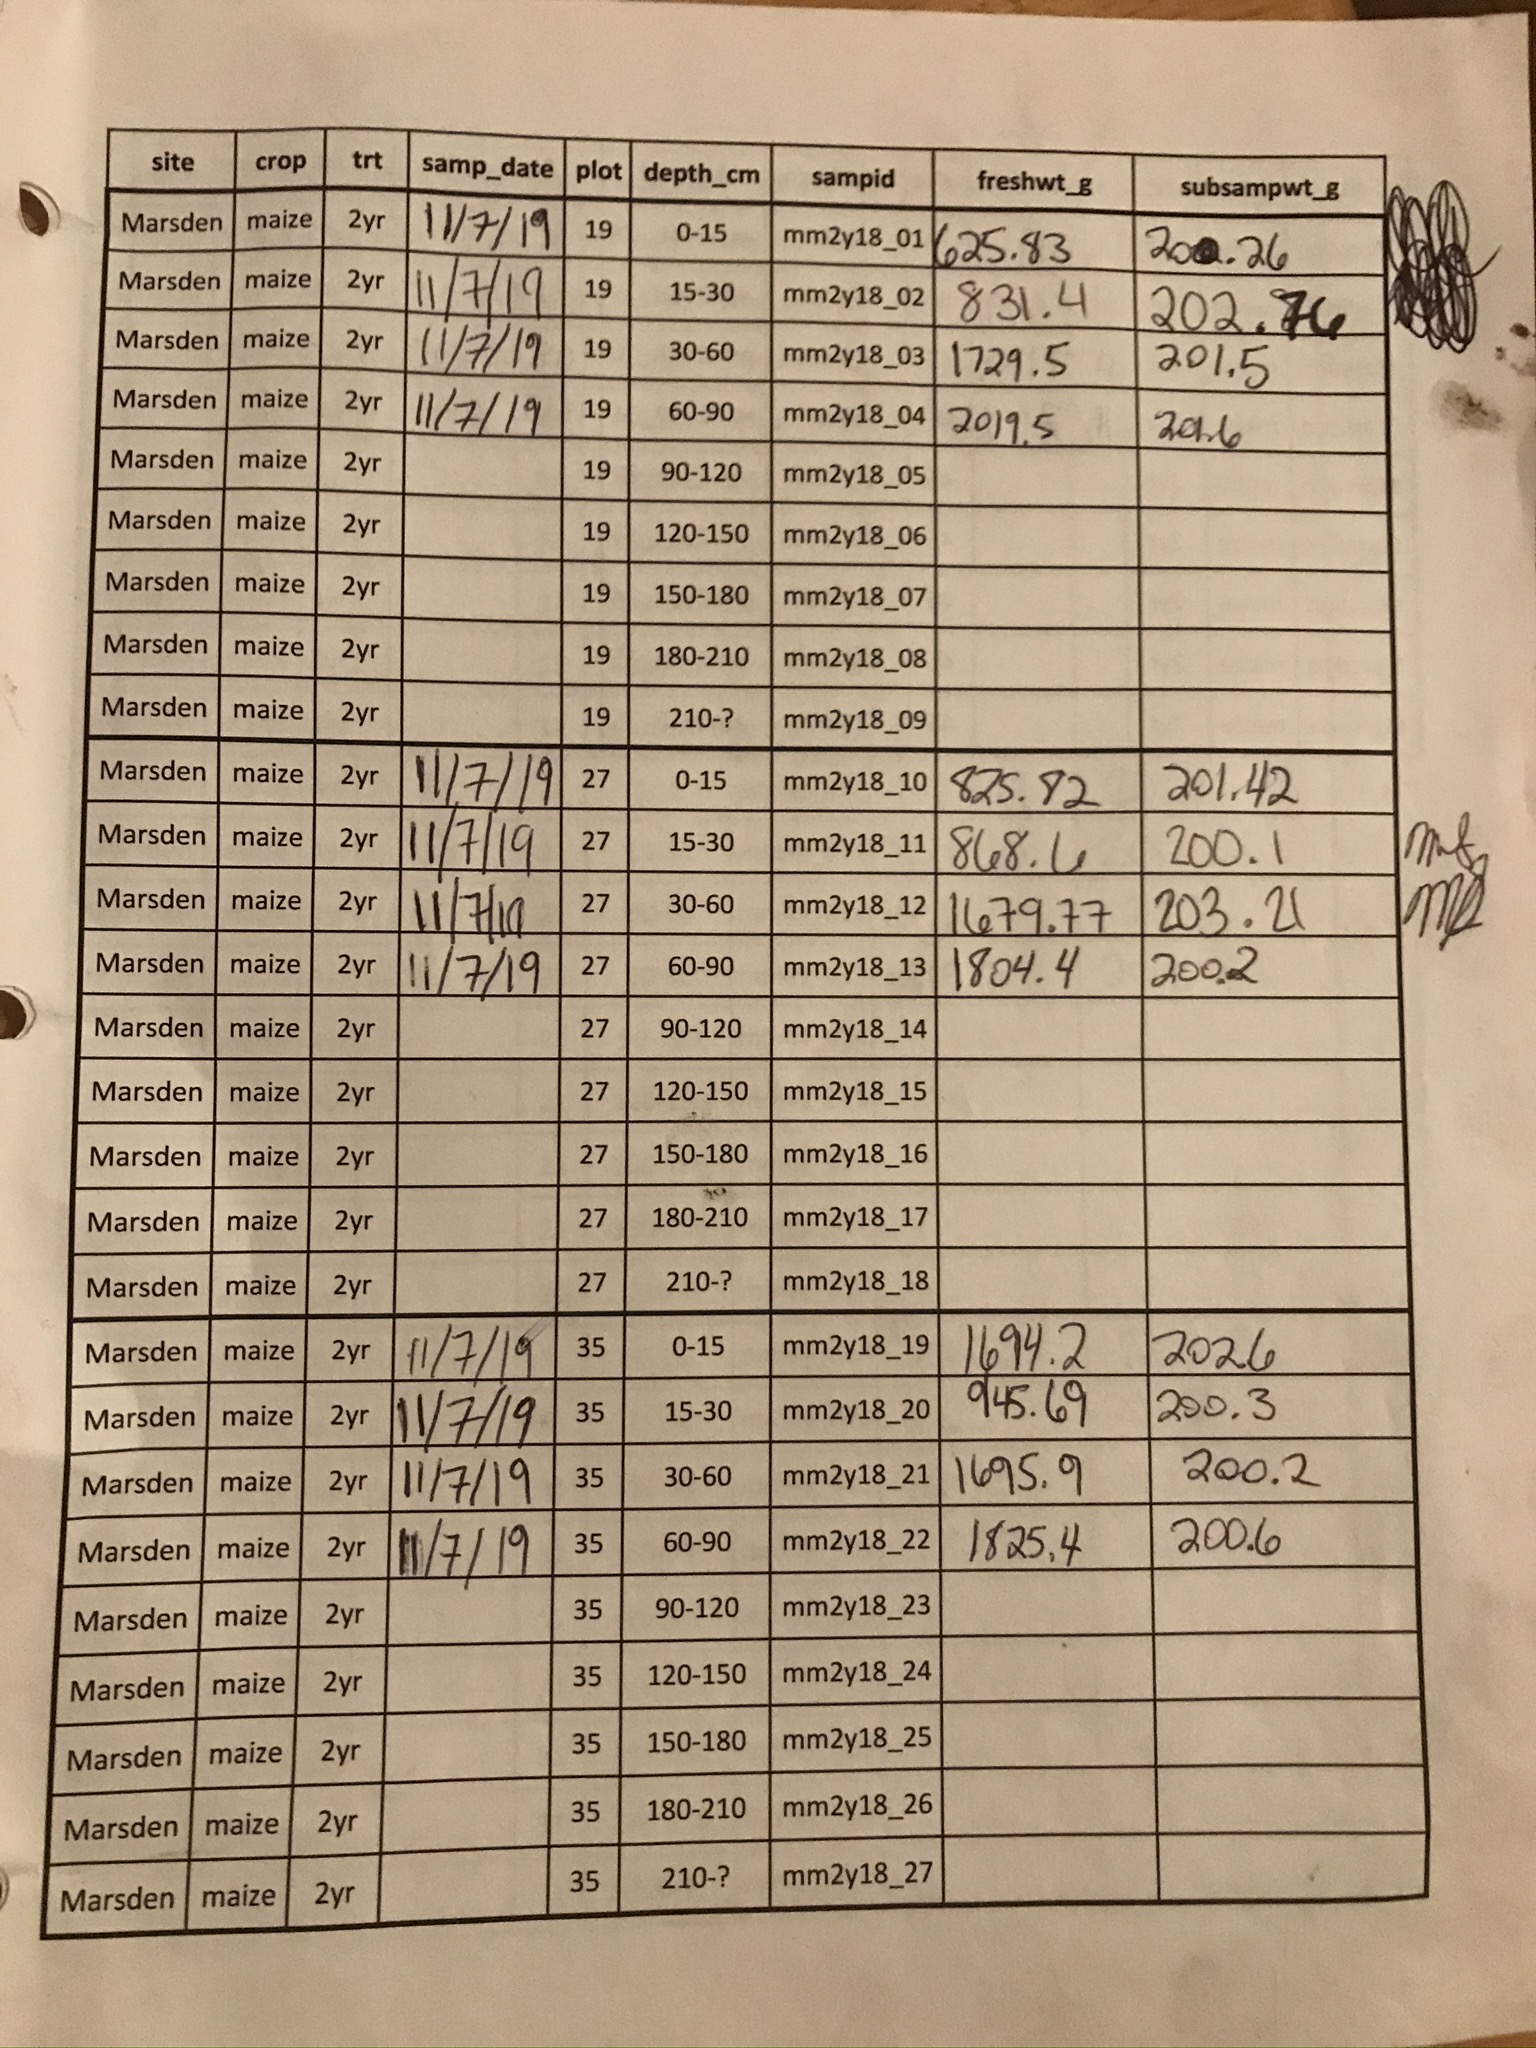 site crop trt samp_date plot depth_cm sampid freshwt_g subsampwt_g
Marsden maize 2yr 11/7/19 19 0-15 mm2y18_01 625.83 200.26
Marsden maize 2yr 11/7/19 19 15-30 mm2y18_02 831.4 202.76
Marsden maize 2yr 11/7/19 19 30-60 mm2y18_03 1729.5 201.5
Marsden maize 2yr 11/7/19 19 60-90 mm2y18_04 2019.5 201.6
Marsden maize 2yr 19 90-120 mm2y18_05
Marsden maize 2yr 19 120-150 mm2y18_06
Marsden maize 2yr 19 150-180 mm2y18_07
Marsden maize 2yr 19 180-210 mm2y18_08
Marsden maize 2yr 19 210-? mm2y18_09
Marsden maize 2yr 11/7/19 27 0-15 mm2y18_10 825.82 201.42
Marsden maize 2yr 11/7/19 27 15-30 mm2y18_11 868.6 200.1
Marsden maize 2yr 11/7/19 27 30-60 mm2y18_12 1679.77 203.21
Marsden maize 2yr 11/7/19 27 60-90 mm2y18_13 1804.4 200.2
Marsden maize 2yr 27 90-120 mm2y18_14
Marsden maize 2yr 27 120-150 mm2y18_15
Marsden maize 2yr 27 150-180 mm2y18_16
Marsden maize 2yr 27 180-210 mm2y18_17
Marsden maize 2yr 27 210-? mm2y18_18
Marsden maize 2yr 11/7/19 35 0-15 mm2y18_19 1694.2 202.6
Marsden maize 2yr 11/7/19 35 15-30 mm2y18_20 945.69 200.3
Marsden maize 2yr 11/7/19 35 30-60 mm2y18_21 1695.9 200.2
Marsden maize 2yr 11/7/19 35 60-90 mm2y18_22 1825.4 200.6
Marsden maize 2yr 35 90-120 mm2y18_23
Marsden maize 2yr 35 120-150 mm2y18_24
Marsden maize 2yr 35 150-180 mm2y18_25
Marsden maize 2yr 35 180-210 mm2y18_26
Marsden maize 2yr 35 210-? mm2y18_27